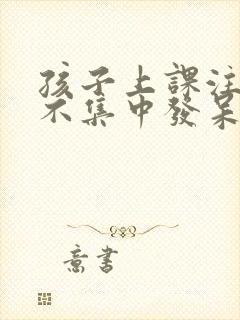 孩子上課注
不集中發呆
意書